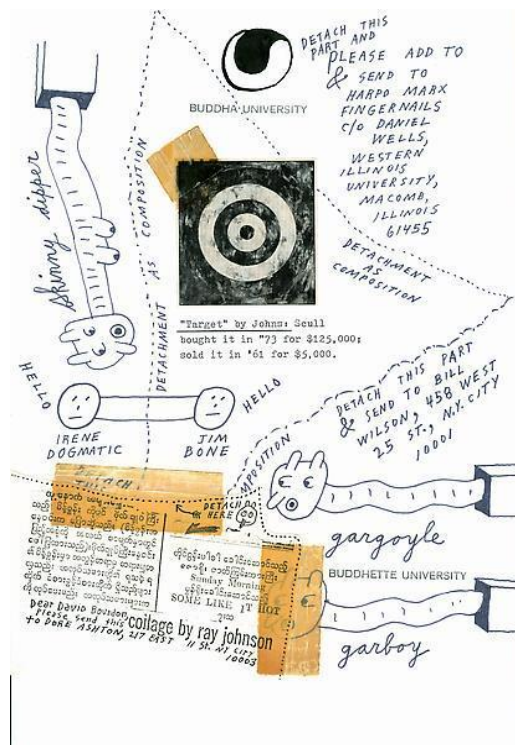 DETACH THIS
PART AND
PLEASE ADD TO
& SEND TO
HARPO MARX
FINGERNAILS
C/O DANIEL
WELLS,
WESTERN
ILLINOIS
UNIVERSITY,
MACOMB,
ILLINOIS
61455
BUDDHA UNIVERSITY
skinny dipper
DETACHMENT AS COMPOSITION
DETACHMENT
AS
COMPOSITION
"Target" by Johns: Scull
bought it in "73 for $125,000;
sold it in '61 for $5,000.
HELLO
HELLO
IRENE
DOGMATIC
JIM
BONE
DETACH THIS PART
& SEND TO BILL
WILSON, 458 WEST
25 ST., N.Y. CITY
10001
DETACH
OR
HERE
gargoyle
BUDDHETTE UNIVERSITY
garboy
Sunday Morning
SOME LIKE IT HOT
collage by ray johnson
Dear David Bourdon
please send this
to DORE ASHTON, 217 EAST 11 St. NY CITY
10003